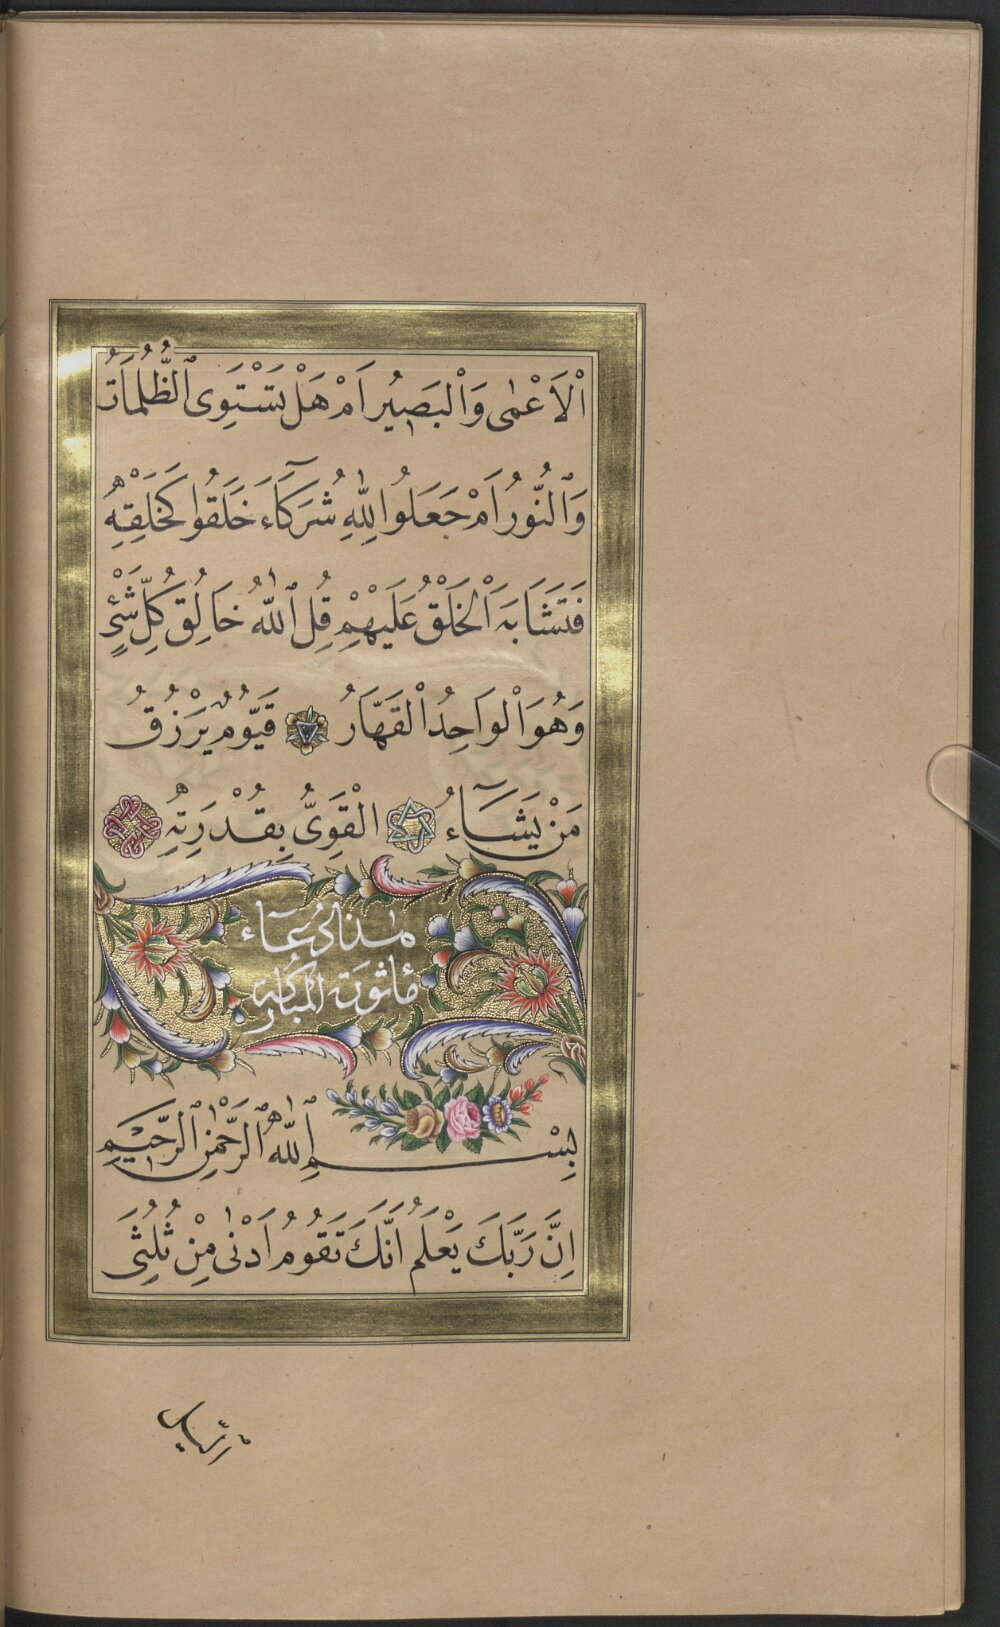 اْلاَعْمٰى وَاْلبَصِيُر اَمْ هَلْ تَسْتَوِى ٱلظُّلُمَاتُ
وَٱلنُّورُ اَمْ جَعَلُوا لِلّٰهِ شُرَكَآءَ خَلَقُوا كَخَلْقِهٖ
فَتَشَابَهَ اْلخَلْقُ عَلَيْهِمْ قُلِ ٱللّٰهُ خَالِقُ كُلِّ شَىْءٍ
وَهُوَ اْلوَاحِدُ اْلقَهَّارُ قَيُّومٌ يَرْزُقُ
مَنْ يَشَآءُ الْقَوِىُّ بِقُدْرَتِهٖ
هٰذا دُعَآء
مأثورَة المُباركة
بِسْمِ ٱللّٰهِ ٱلرَّحْمٰنِ ٱلرَّحٖيمِ
اِنَّ رَبَّكَ يَعْلَمُ اَنَّكَ تَقُومُ اَدْنٰى مِنْ ثُلُثَىِ